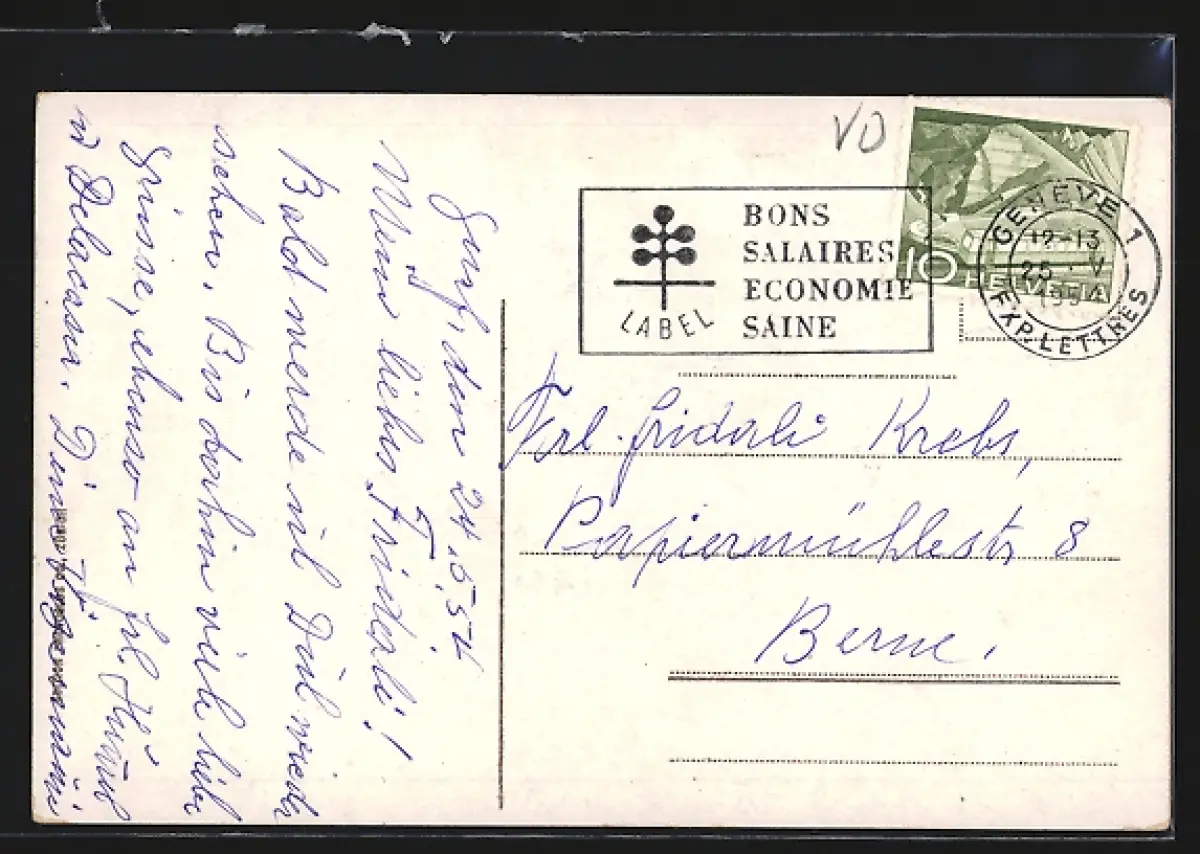 Genf, den 24.5.54
Mein liebes Fridali!
Bald werde ich Dich wieder
sehen. Bis dorhin viele liebe
Grüsse, ebenso an Frl. Hunul
u Delacasa. Dini
VD
BONS
SALAIRES
ECONOMIE
SAINE
LABEL
10 HELVETIA
GENÈVE 1
12-13
25. V
1954
EXP. LETTRES
Frl. Fridali Krebs,
Papiermühlestr 8
Berne.